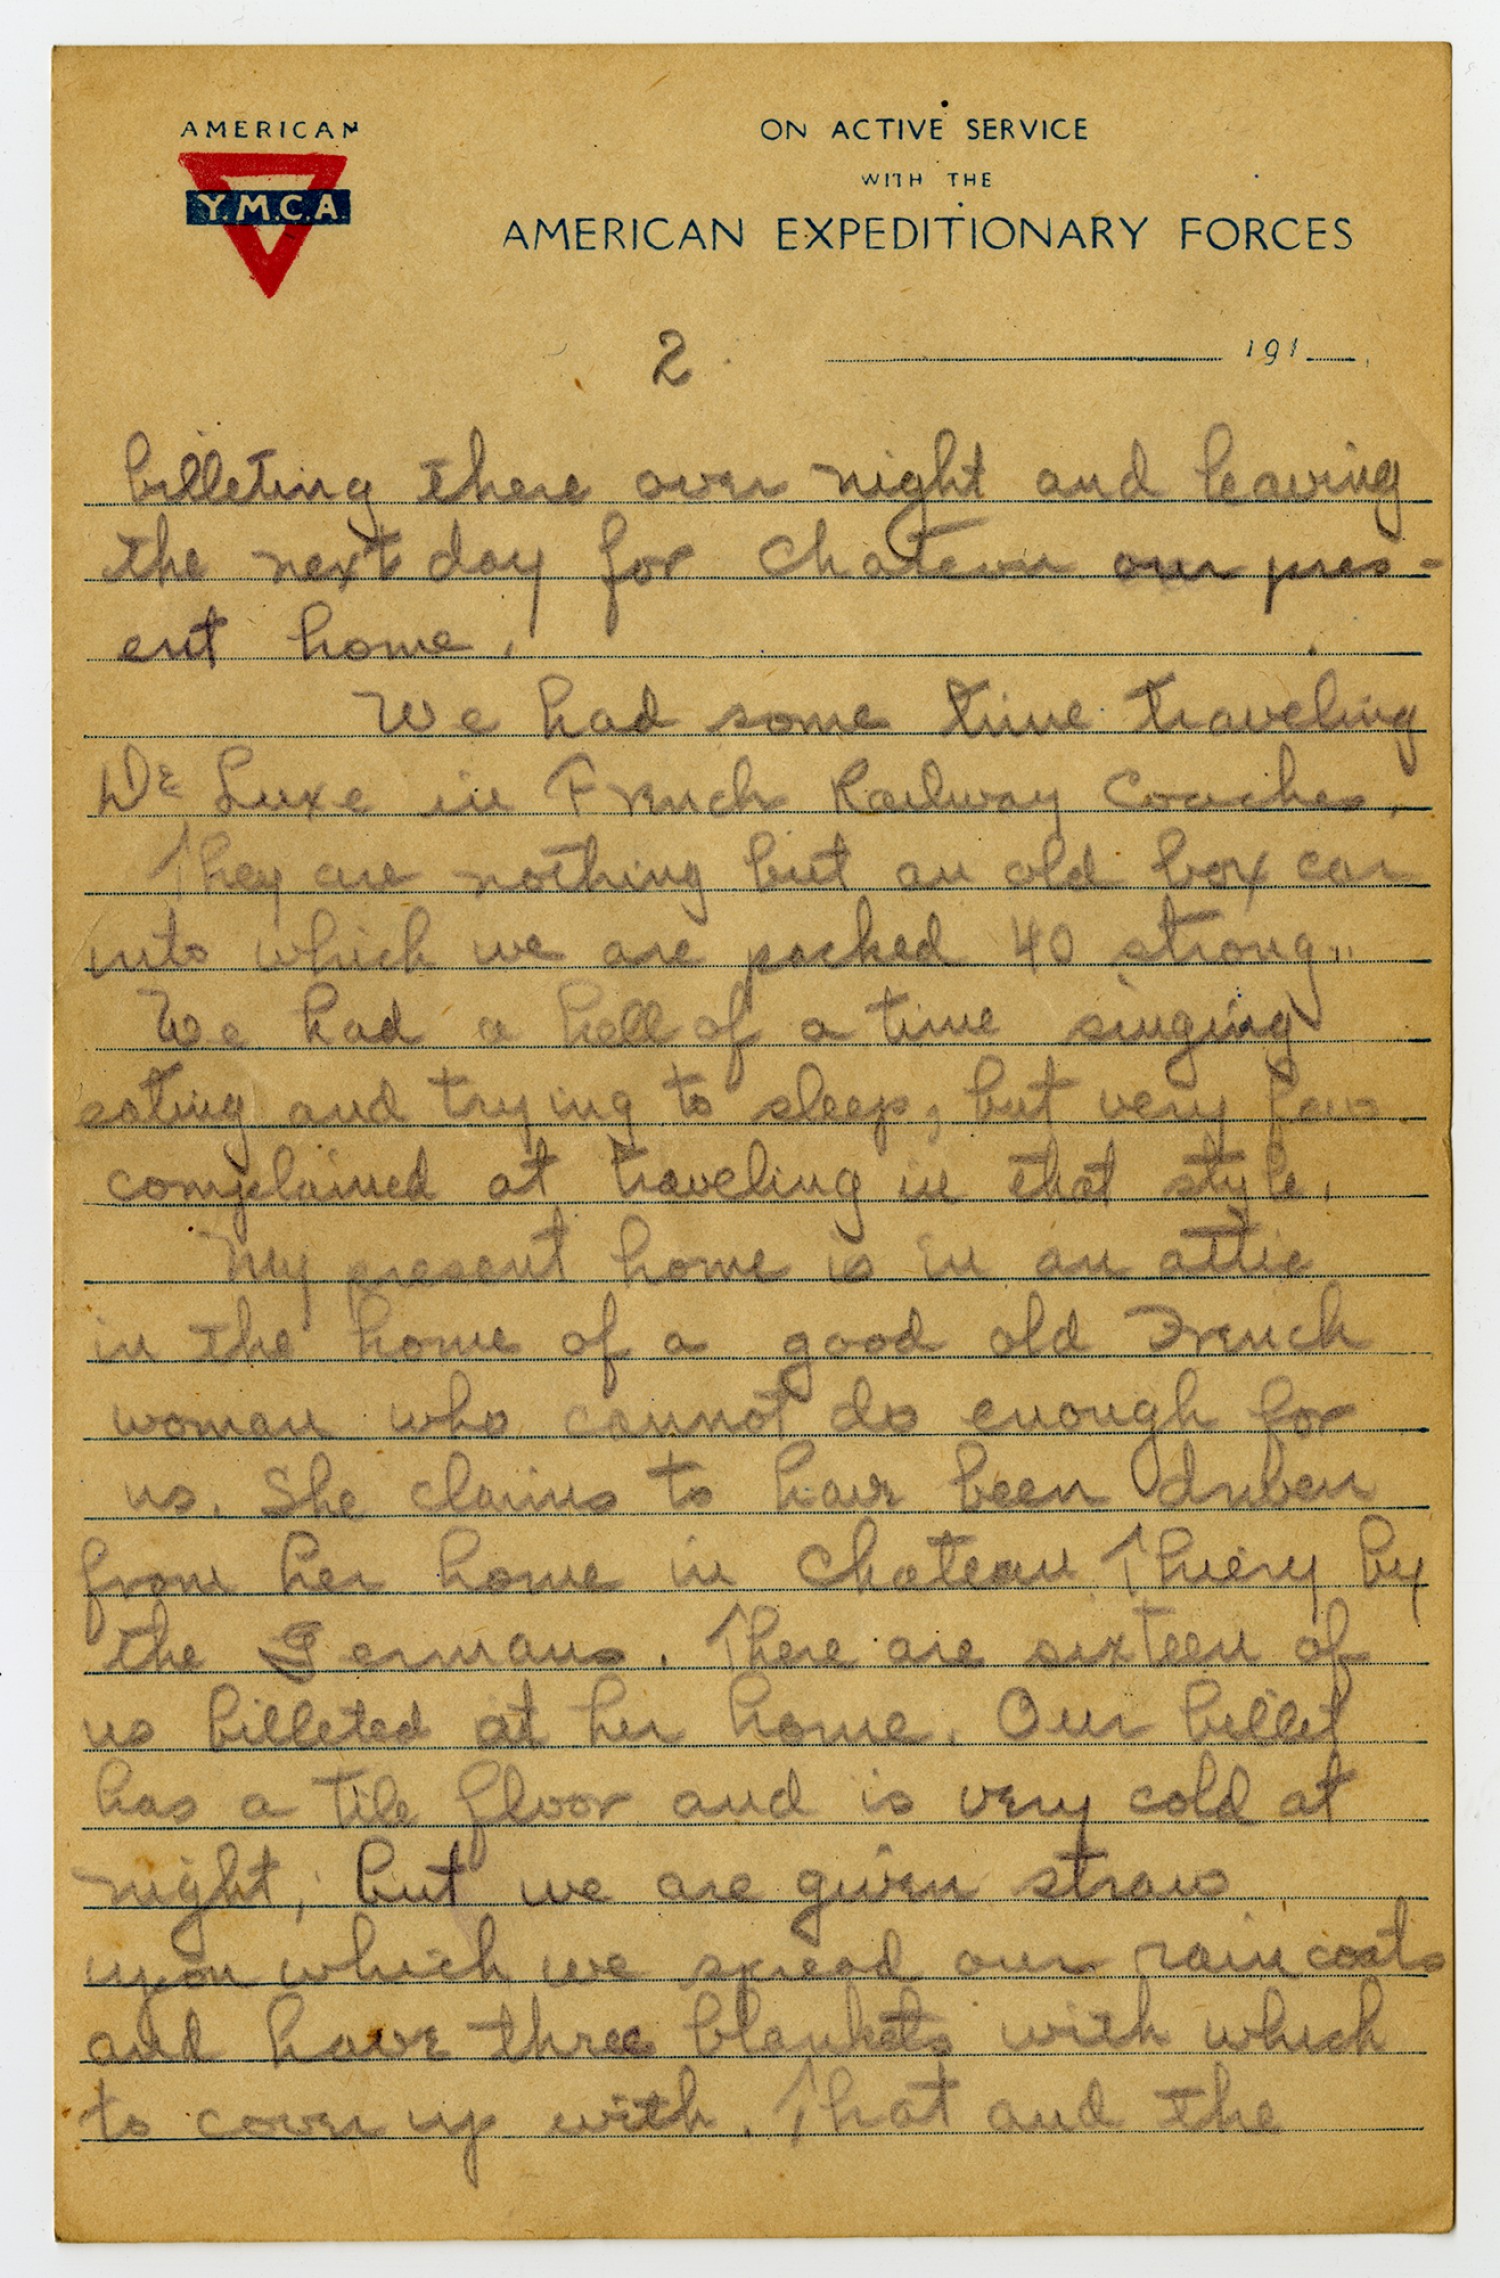 AMERICAN
Y.M.C.A.
ON ACTIVE SERVICE
WITH THE
AMERICAN EXPEDITIONARY FORCES
2 191
billeting there over night and leaving
the next day for Chateau our pres-
ent home.
We had some time traveling
De Luxe in French Railway Coaches.
They are nothing but an old box car
into which we are packed 40 strong..
We had a hell of a time singing
eating and trying to sleep, but very few
complained at traveling in that style.
My present home is in an attic
in the home of a good old French
woman who cannot do enough for
us. She claims to have been driben
from her home in Chateau Thiery by
the Germans. There are sixteen of
us billeted at her home. Our billet
has a tile floor and is very cold at
night, but we are given straw
upon which we spread our rain coats
and have three blankets with which
to cover up with. That and the